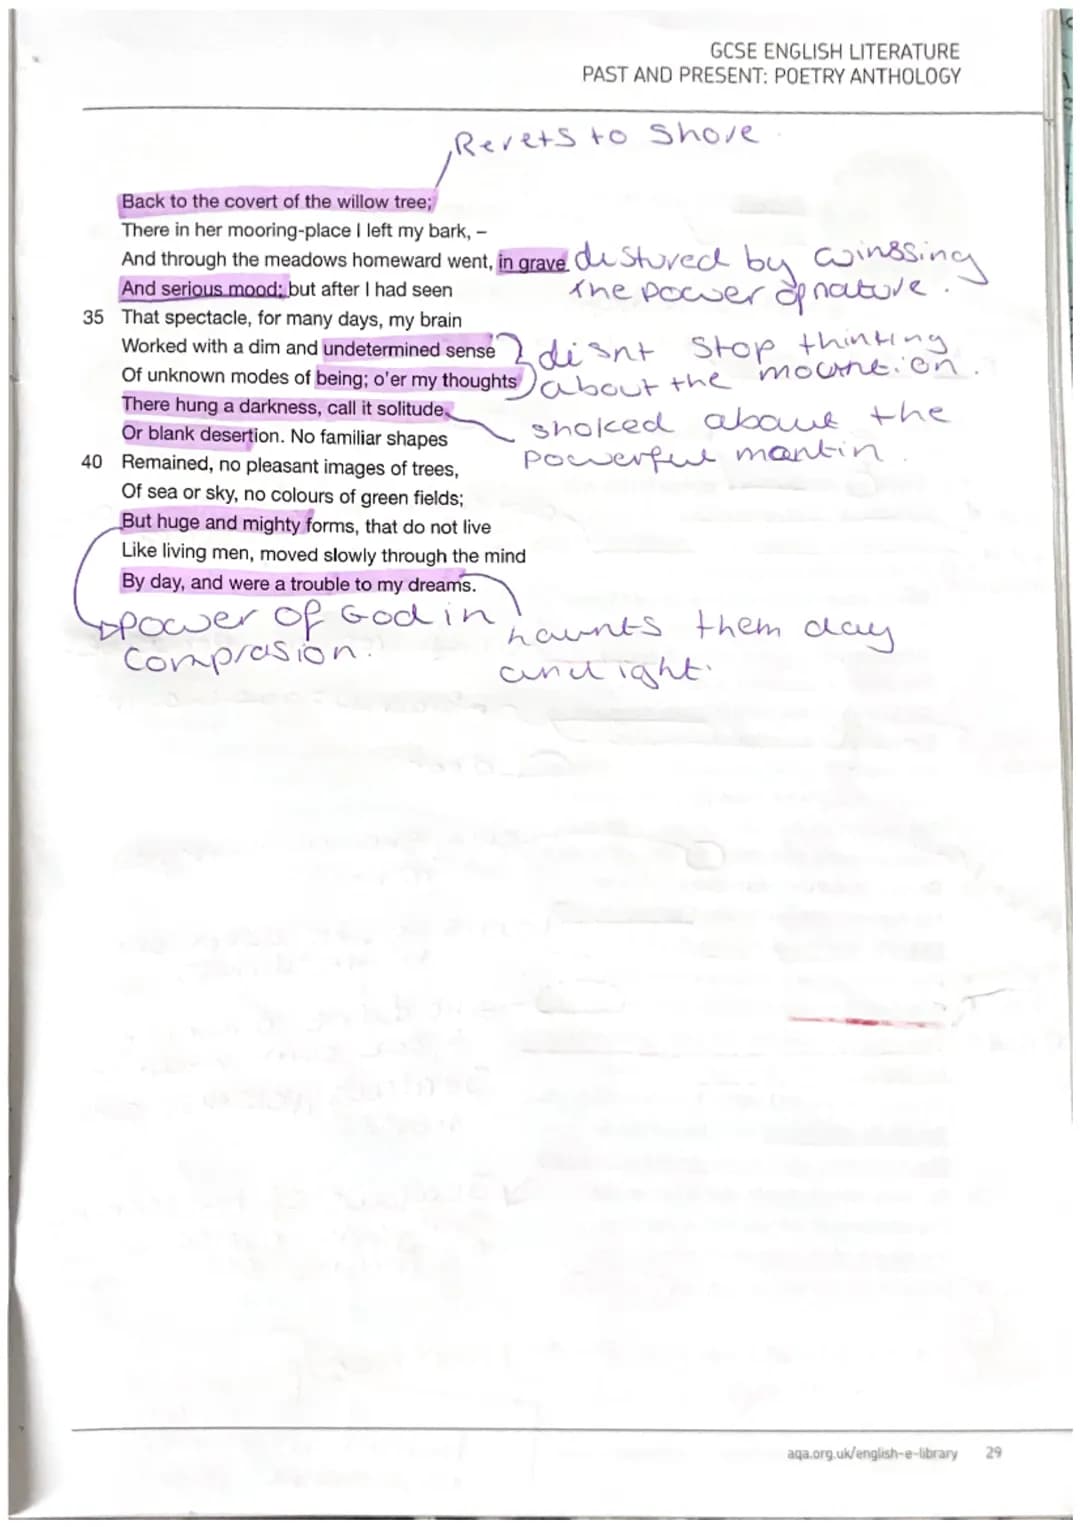 GCSE ENGLISH LITERATURE
PAST AND PRESENT: POETRY ANTHOLOGY
Reverts to Shore.
Back to the covert of the willow tree;
There in her mooring-place I left my bark, –
And through the meadows homeward went, in grave
And serious mood; but after I had seen
destured by winssing
the power of nature.
35 That spectacle, for many days, my brain
Worked with a dim and undetermined sense
Of unknown modes of being; o'er my thoughts
disnt stop thinking
about the
There hung a darkness, call it solitude
Or blank desertion. No familiar shapes
shoked about the
powerful
40 Remained, no pleasant images of trees,
Of sea or sky, no colours of green fields;
But huge and mighty forms, that do not live
Like living men, moved slowly through the mind
By day, and were a trouble to my dreams.
power of God in
comprasion.
haunts them day
and ight.
aqa.org.uk/english-e-library 29